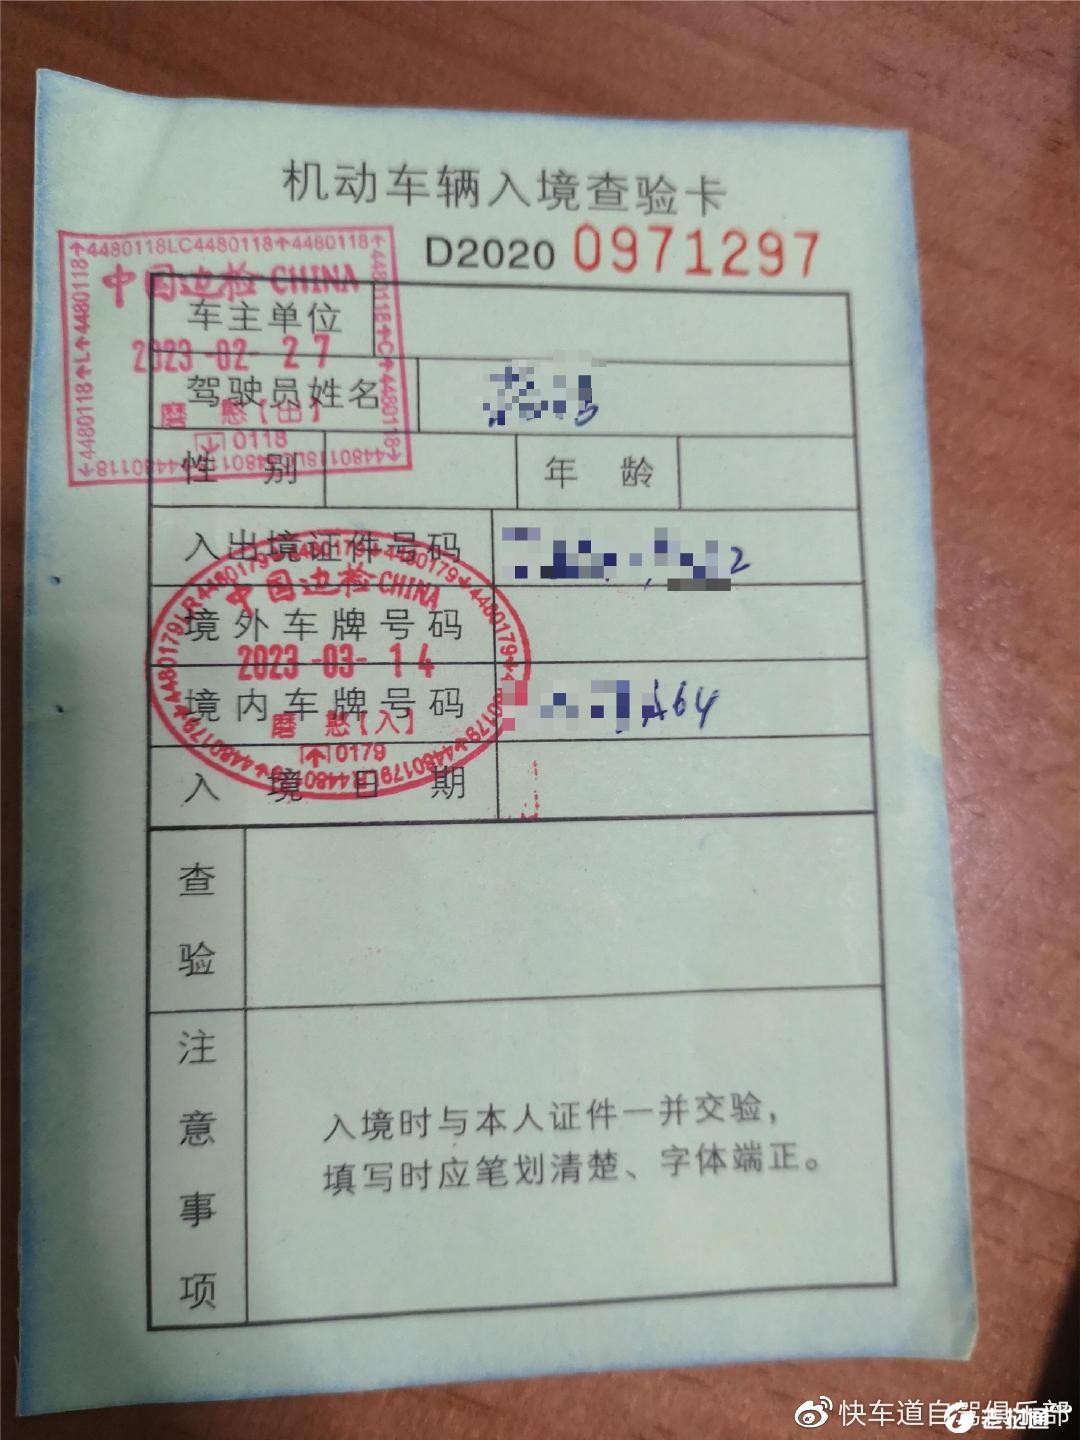 机动车辆入境查验卡
D2020 0971297
4480118LC4480118↑4480118↑
中国边检 CHINA
车主单位
2023-02-27
驾驶员姓名
磨憨【出】
0118
性别
年龄
入出境证件号码
2
中国边检 CHINA
境外车牌号码
2023-03-14
境内车牌号码
A64
磨憨【入】
0179
入境日期
查验
注意事项
入境时与本人证件一并交验，
填写时应笔划清楚、字体端正。
快车道自驾俱乐部